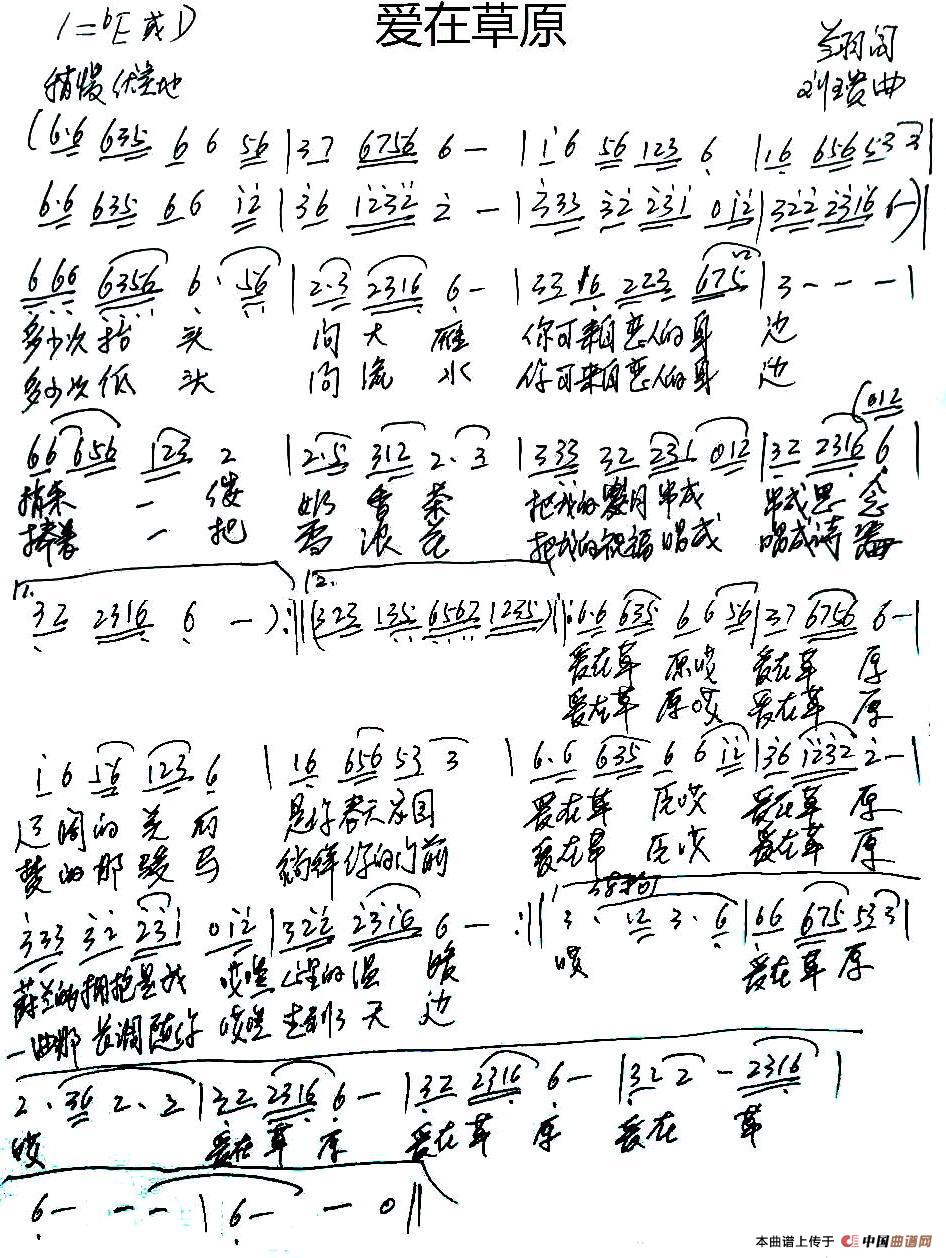 爱在草原
1=bE 或 D
稍慢 优美地
兰羽词
曲
(6·6 635 6 6 56 | 37 6756 6 - | 1 6 56 123 6 | 16 656 53 3 |
6·6 635 66 12 | 36 1232 2 - | 333 32 231 012 | 322 2316 6 - ) |
6 66 6356 6· 56 | 2·3 2316 6 - | 33 16 223 675 | 3 - - - |
多少次抬头 问大雁 你可来自恋人的身边
多少次低头 问流水 你可来自恋人的身边
(012
66 656 123 2 | 2·5 312 2·3 | 333 32 231 012 | 32 2316 6 |
捎来一缕 奶香茶 把我的岁月串成 串成思念
捧着一把 雪浪花 把我的祝福唱成 唱成诗
1. 2.
32 2316 6 - ) :|| (323 135 6562 1235) ||: 6·6 635 6 6 56 | 37 6756 6 - |
爱在草原哎 爱在草原
爱在草原哎 爱在草原
1 6 56 123 6 | 16 656 53 3 | 6·6 635 6 6 12 | 36 1232 2 - |
辽阔的 是你春天花园 爱在草原哎 爱在草原
梦的那骏马 徜徉你的门前 爱在草原哎 爱在草原
333 32 231 012 | 322 2316 6 - :|| 3· 12 3·6 | 66 675 53 3 |
的拥抱是我 哎嘿 的温暖 哎 爱在草原
一曲那长调随你 哎嘿 走到了天边
2·36 2·2 | 32 2316 6 - | 32 2316 6 - | 32 2 - 2316 |
哎 爱在草原 爱在草原 爱在草
6 - - - | 6 - - 0 ||
本曲谱上传于 中国曲谱网